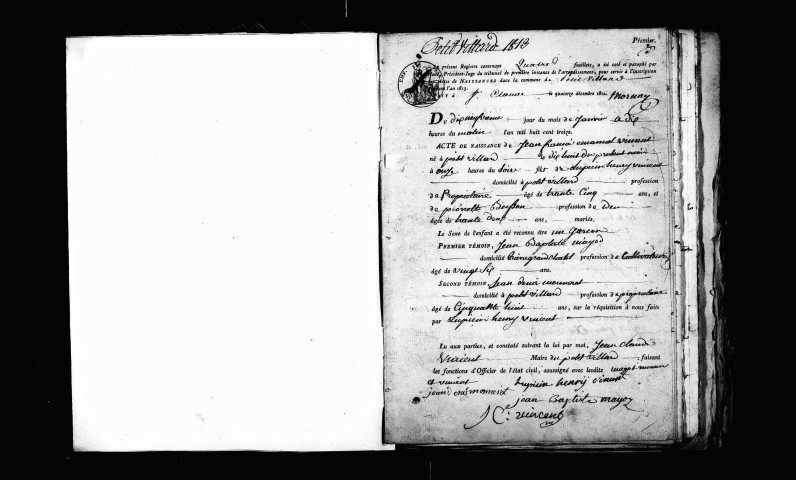 Petit Villard 1813
Premier.
Le présent Registre contenant quatre feuillets, a été coté et paraphé par
Président-Juge du tribunal de première instance de l'arrondissement, pour servir à l'inscription
des actes de NAISSANCES dans la commune de petit Villard
l'an 1813.
FAIT à St Claude le quatorze décembre 1812. Mornay
Du dix neuvieme jour du mois de janvier à dix
heures du matin l'an mil huit cent treize.
ACTE DE NAISSANCE de Jean francoi emamel vincent
né à petit villard le dix huit du present moi
à onze heures du soire fils de Lupicin henry vincent
domicilié à petit villard profession
de Propriétaire âgé de trante Cinq ans, et
de pierrette profession de
âgée de trante deux ans, mariés.
Le Sexe de l'enfant a été reconnu être un garcon
PREMIER TÉMOIN, Jean Baptiste mayod
domicilié profession de Cultivateur
âgé de vingt Six ans.
SECOND TÉMOIN, Jean monneret
domicilié à petit villard profession de propriétaire
âgé de Cinquante huit ans, sur la réquisition à nous faite
par Lupicin henry vincent
Lu aux parties, et constaté suivant la loi par moi, Jean Claude
Vincent Maire de petit villard faisant
les fonctions d'Officier de l'état civil, soussigné avec lesdits mayet monneret
et vincent lupicin henry vincent
jean monneret
jean Baptiste mayoz
J C. vincent